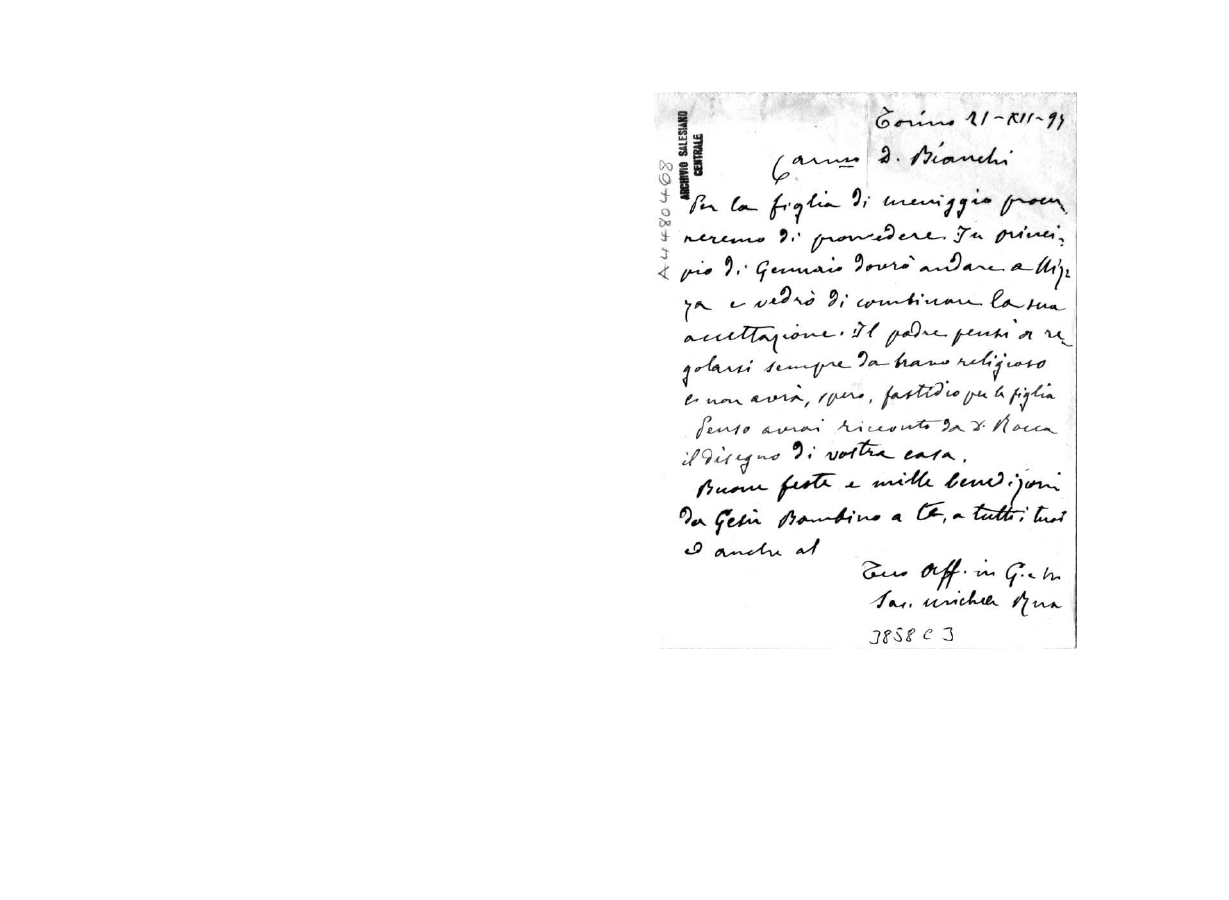 Torino 21-XII-94
Car.mo D. Bianchi
Per la figlia di meriggio procu
reremo di provvedere. In princi-
pio di Gennaio dovrò andare a Niz-
za e vedrò di combinare la sua
accettazione. Il padre pensi a re-
golarsi sempre da bravo religioso
e non avrà, spero, fastidio per la figlia
Penso avrai ricevuto da D. Rocca
il disegno di vostra casa.
Buone feste e mille benedizioni
da Gesù Bambino a te, a tutti i tuoi
ed anche al
Tuo Aff. in G. e M.
Sac. Michele Rua
3858 C 3
ARCHIVIO SALESIANO
CENTRALE
A4480468